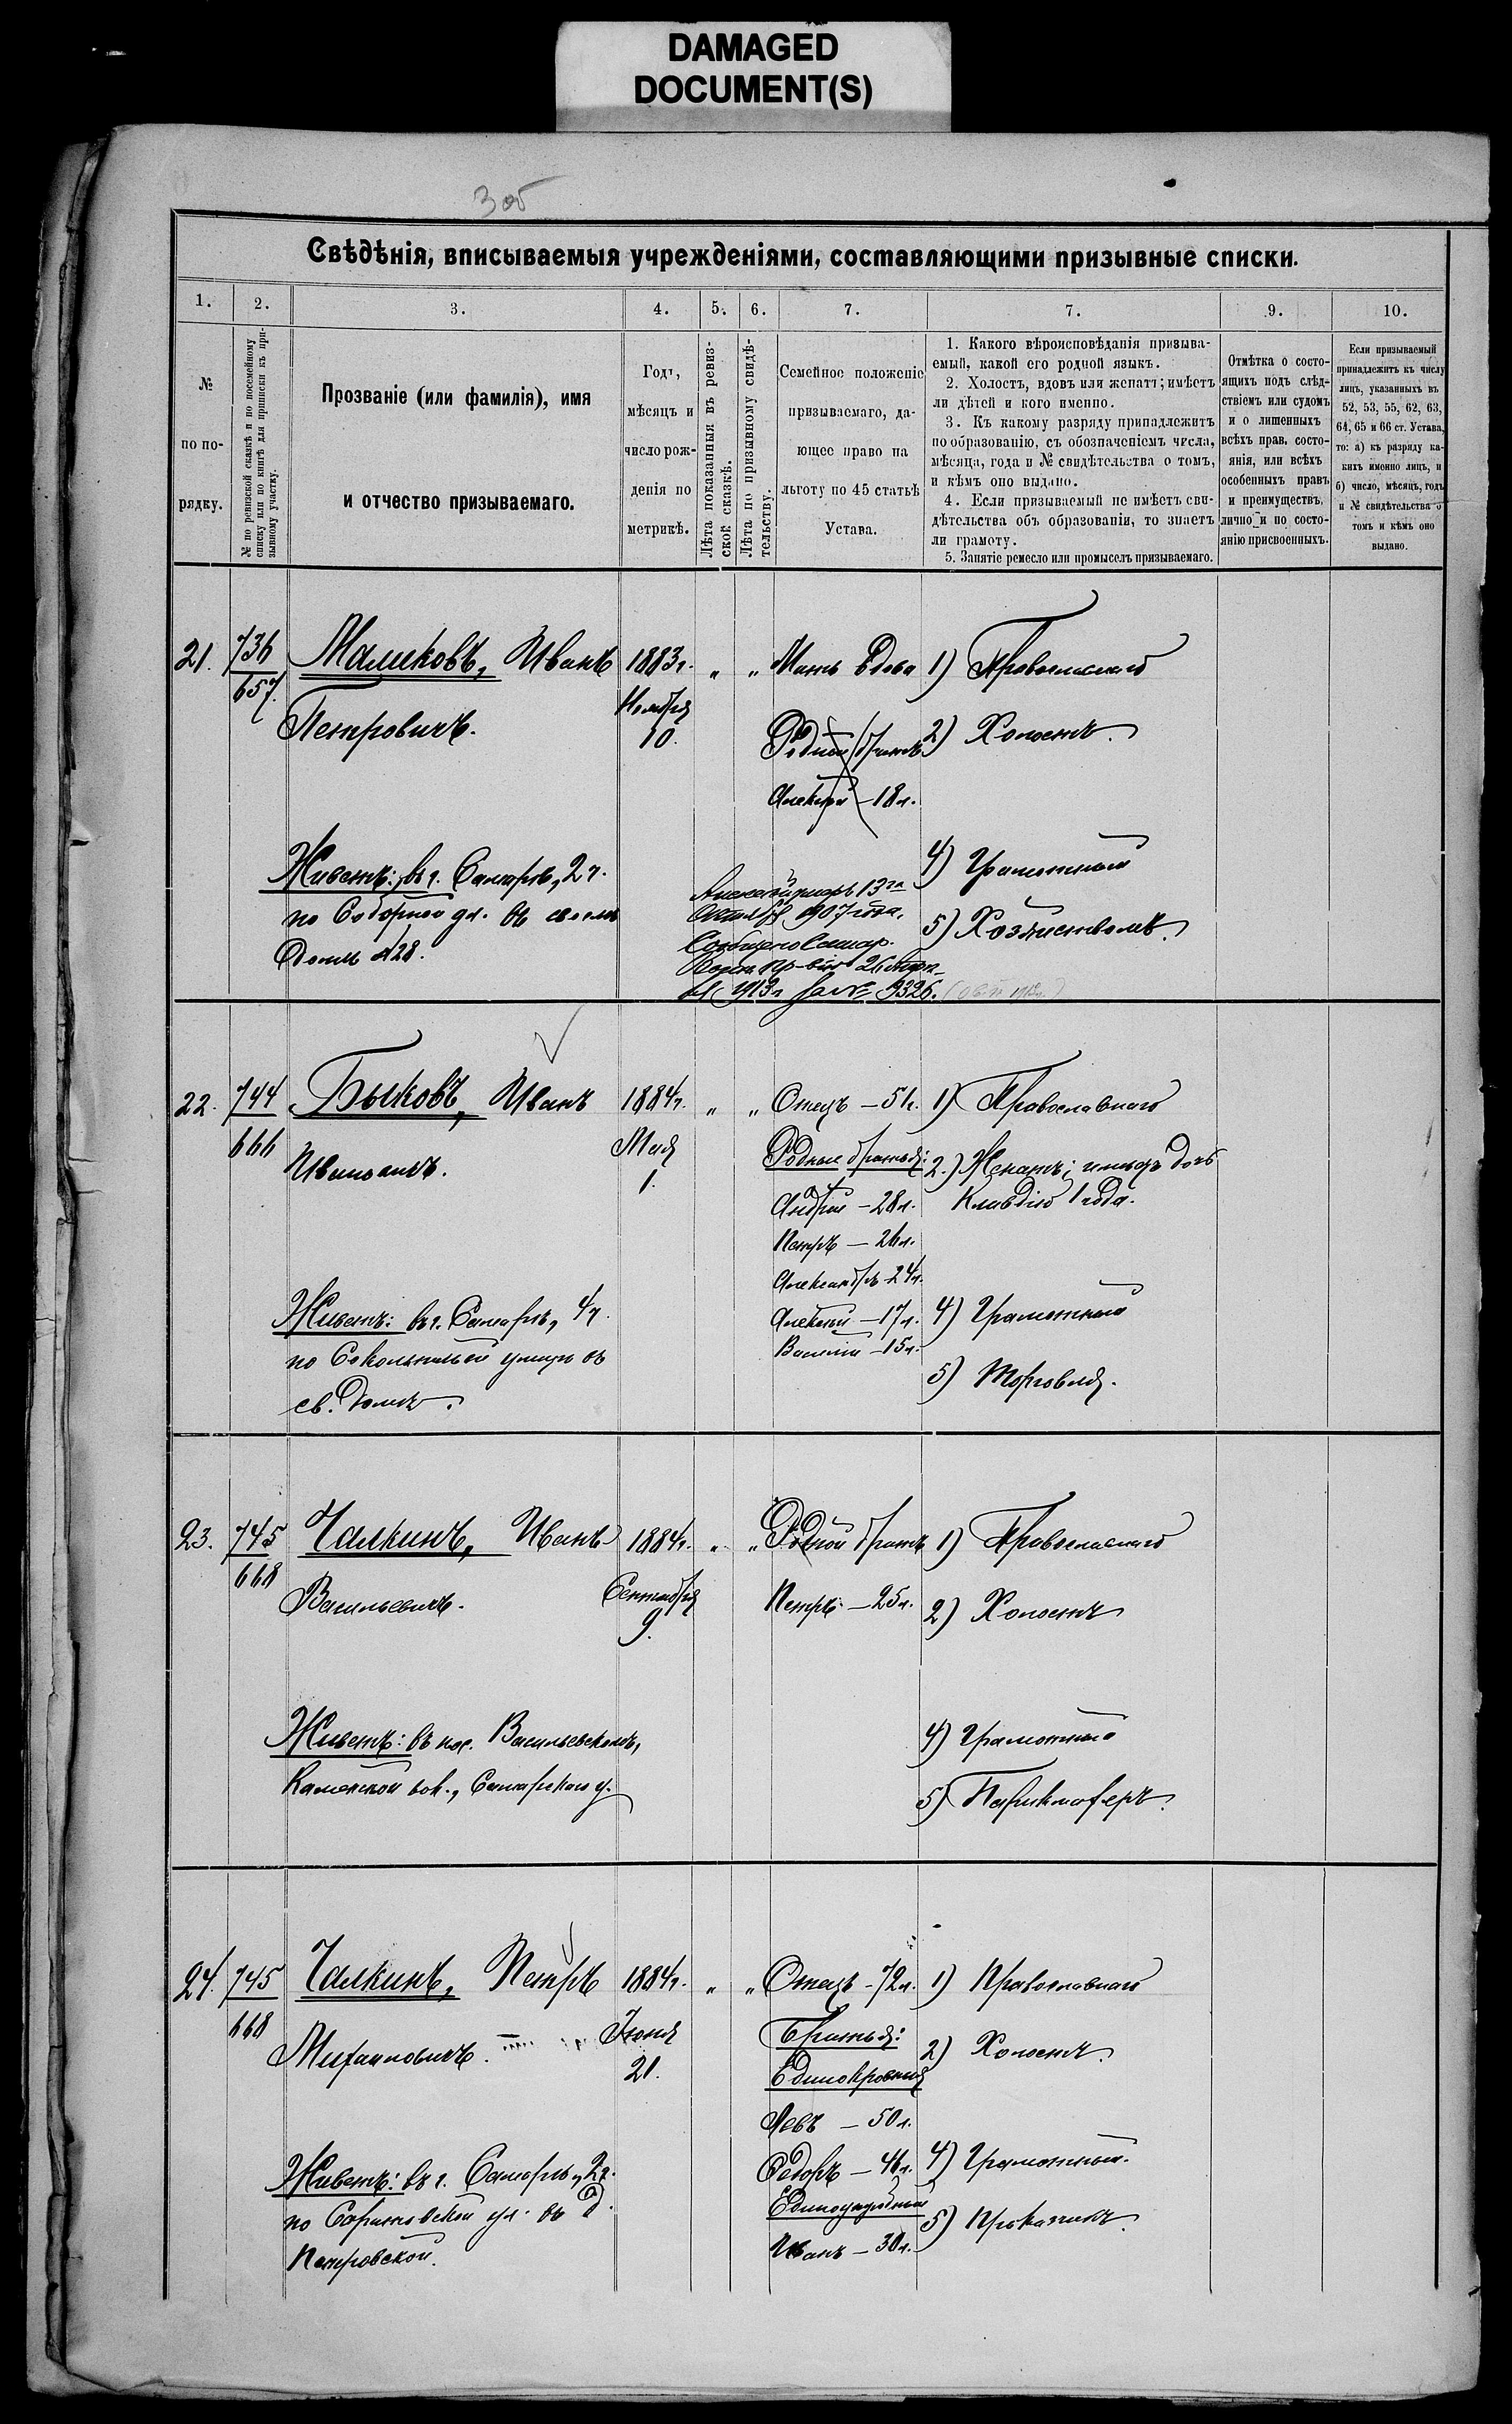 DAMAGED
DOCUMENT(S)
3 об
Свѣдѣнія, вписываемыя учрежденіями, составляющими призывные списки.
1. 2. 3. 4. 5. 6. 7. 7. 9. 10.
№
по по-
рядку.
№ по ревизской сказкѣ и по посемейному
списку или по книгѣ для приписки къ при-
зывному участку.
Прозваніе (или фамилія), имя
и отчество призываемаго.
Годъ,
мѣсяцъ и
число рож-
денія по
метрикѣ.
Лѣта показанныя въ ревиз-
ской сказкѣ.
Лѣта по призывному свидѣ-
тельству.
Семейное положеніе
призываемаго, да-
ющее право на
льготу по 45 статьѣ
Устава.
1. Какого вѣроисповѣданія призыва-
емый, какой его родной языкъ.
2. Холостъ, вдовъ или женатъ; имѣетъ
ли дѣтей и кого именно.
3. Къ какому разряду принадлежитъ
по образованію, съ обозначеніемъ числа,
мѣсяца, года и № свидѣтельства о томъ,
и кѣмъ оно выдано.
4. Если призываемый не имѣетъ сви-
дѣтельства объ образованіи, то знаетъ
ли грамоту.
5. Занятіе ремесло или промыселъ призываемаго.
Отмѣтка о состо-
ящихъ подъ слѣд-
ствіемъ или судомъ
и о лишенныхъ
всѣхъ прав. состо-
янія, или всѣхъ
особенныхъ правъ
и преимуществъ,
лично и по состо-
янію присвоенныхъ.
Если призываемый
принадлежитъ къ числу
лицъ, указанныхъ въ
52, 53, 55, 62, 63,
64, 65 и 66 ст. Устава,
то: а) къ разряду ка-
кихъ именно лицъ, и
б) число, мѣсяцъ, годъ
и № свидѣтельства о
томъ и кѣмъ оно
выдано.
21. 736 Маликовъ, Иванъ 1883 г. " " Мать вдова 1) Православнаго
657. Петровичъ. Ноября
10. Родной братъ 2) Холостъ.
Алексѣй – 18 л.
Живетъ: въ г. Самарѣ, 2 ч.
по Соборной ул. въ своемъ
домѣ № 28.
4) Грамотный
5) Хозяйствомъ.
1907 года.
Сообщено Самар.
1913 г. за № 9326.
22. 744 Быковъ, Иванъ 1884 г. " " Отецъ – 51 г. 1) Православнаго
666 Ивановичъ. Мая
1.
Родные братья: 2.) Женатъ; имѣетъ дочь
Андрей – 28 л. Клавдію 1 года.
Петръ – 26 л.
Александръ 24 л.
Алексѣй – 17 л. 4) Грамотный
Василій – 15 л.
5) Торговля.
Живетъ: въ г. Самарѣ, 4 ч.
по Сокольничьей улицѣ въ
св. домѣ.
23. 745 Чалкинъ, Иванъ 1884 г. " " Родной братъ 1) Православнаго
668 Васильевичъ. Сентября
9.
Петръ – 25 л. 2) Холостъ
Живетъ: въ пос. Васильевскомъ,
Каменской вол., Самарскаго у.
4) Грамотный
5) Парикмахеръ.
24. 745 Чалкинъ, Петръ 1884 г. " " Отецъ – 72 л. 1) Православнаго
668 Михайловичъ. Іюня
21.
Братья: 2) Холостъ.
Единокровные
Левъ – 50 л.
Федоръ – 46 л. 4) Грамотный.
Единоутробный
Иванъ – 30 л. 5) Приказчикъ.
Живетъ: въ г. Самарѣ, 2 ч.
по Саратовской ул. въ д.
Петровской.